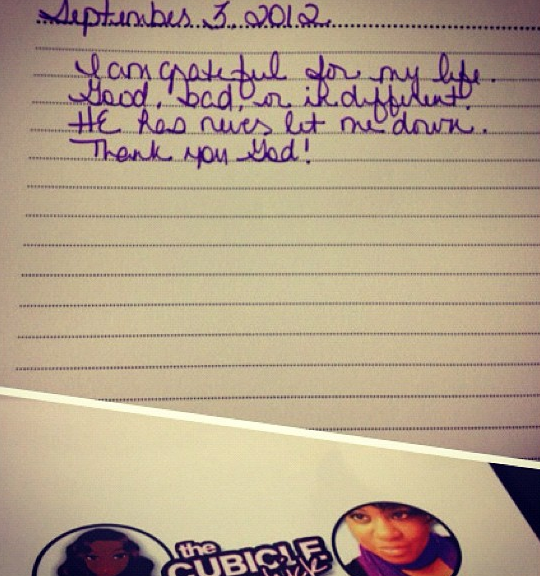 September 3, 2012
I am grateful for my life.
Good, bad, or indifferent.
HE has never let me down.
Thank you God!
the
CUBICLE